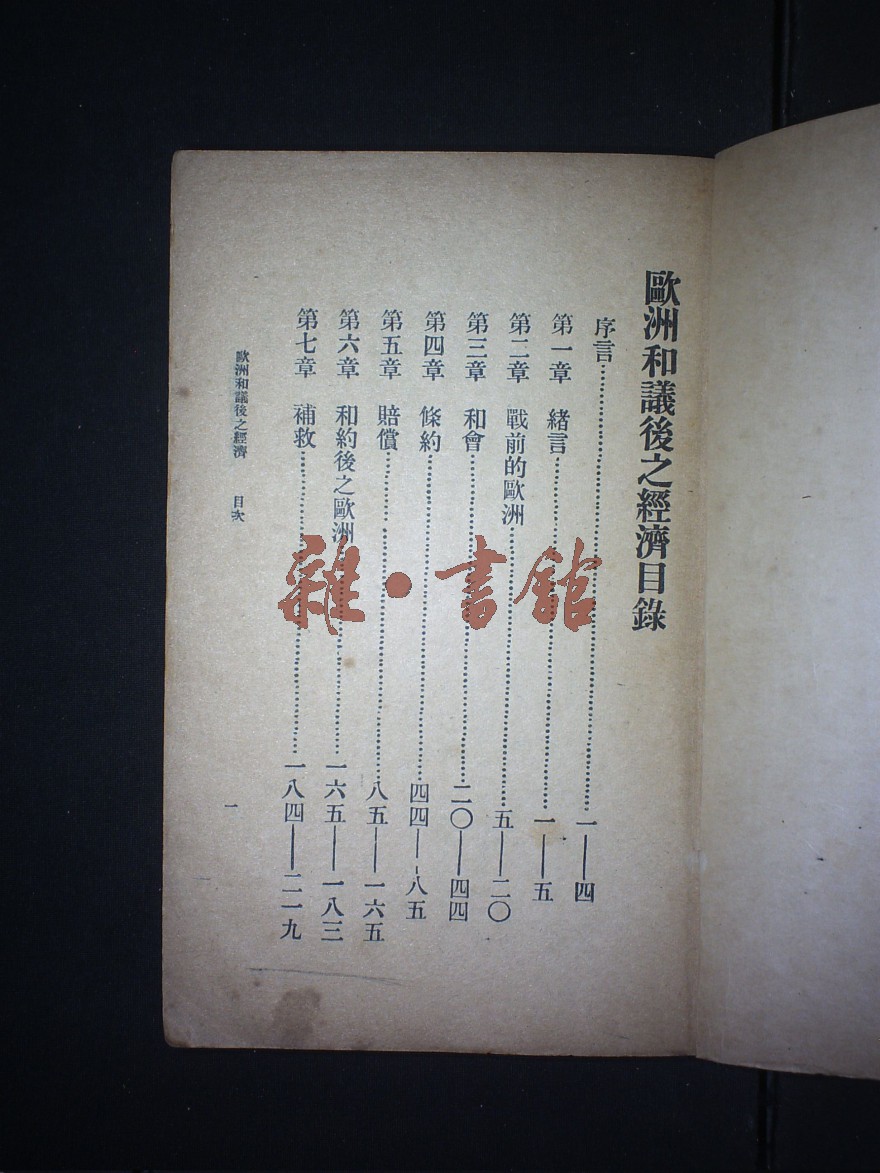 歐洲和議後之經濟目錄
序言……一——四
第一章 緒言……一——五
第二章 戰前的歐洲……五——二〇
第三章 和會……二〇——四四
第四章 條約……四四——八五
第五章 賠償……八五——一六五
第六章 和約後之歐洲……一六五——一八三
第七章 補救……一八四——二一九
歐洲和議後之經濟 目次
一
雜·書館